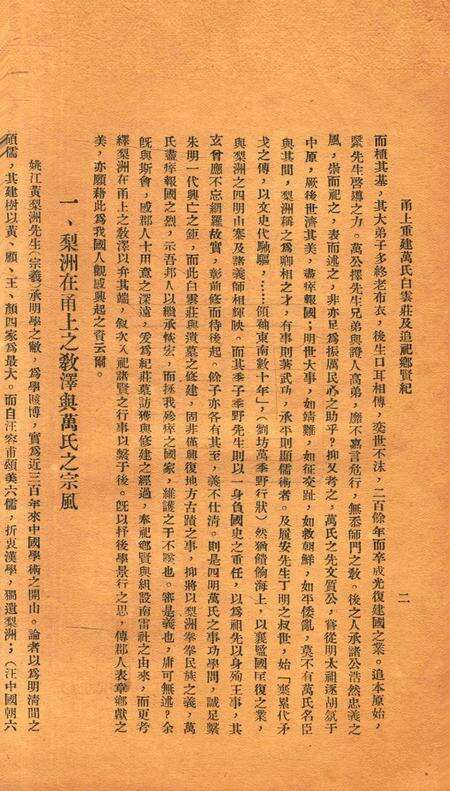 甬上重建萬氏白雲莊及追祀鄕賢紀
二
而植其基，其大弟子多終老布衣，後生口耳相傳，奕世不沫，二百餘年而卒成光復建國之業。追本原始，
繄先生啓導之力。萬公擇先生兄弟與證人高弟，靡不嘉言危行，無忝師門之敎。後之人承諸公浩然忠義之
風，崇而祀之，表而述之，非亦足爲振厲民心之助乎？抑又考之，萬氏之先文質公，嘗從明太祖逐胡氛于
中原，厥後世濟其美，盡瘁報國；明世大事，如靖難，如征交趾，如救朝鮮，如平倭亂，莫不有萬氏名臣
與其間，梨洲稱之爲卿相之才，有事則著武功，承平則顯儒術者。及履安先生丁明之叔世，始「棄累代矛
戈之傳，以文史代馳驅，……領袖東南數十年」，（劉坊萬季野行狀）然猶餽餉海上，以襄監國匡復之業，
與梨洲之四明山寨及諸義師相輝映。而其季子季野先生則以一身負國史之重任，以爲祖先以身殉王事，其
玄曾應不忘網羅故實，彰前修而待後起，餘子亦各有其至，義不仕淸。則是四明萬氏之事功學問，誠足繫
朱明一代興亡之鉅，而此白雲莊與遺墓之修建，固非僅興復地方古蹟之事，抑將以梨洲拳拳民族之義，萬
氏盡瘁報國之烈，示吾邦人以繼承恢宏，而拯我殄瘁之國家，維護之于不墜也。審是義也，庸可無述？余
旣與斯會，感郡人士用意之深遠，爰爲紀莊墓訪獲與修建之經過，奉祀鄕賢與組設南雷社之由來，而更考
繹梨洲在甬上之敎澤以弁其端，敍次入祀諸賢之行事以繫于後。旣以抒後學景行之思，傳郡人表章鄕獻之
美，亦願藉此爲我國人觀感興起之資云爾。
一、梨洲在甬上之敎澤與萬氏之宗風
姚江黃梨洲先生（宗羲）承明學之敝，爲學賅博，實爲近三百年來中國學術之開山。論者以爲明淸間之
碩儒，其建樹以黃、顧、王、顏四家爲最大。而自汪容甫頌美六儒，折衷漢學，獨遺梨洲；（汪中國朝六